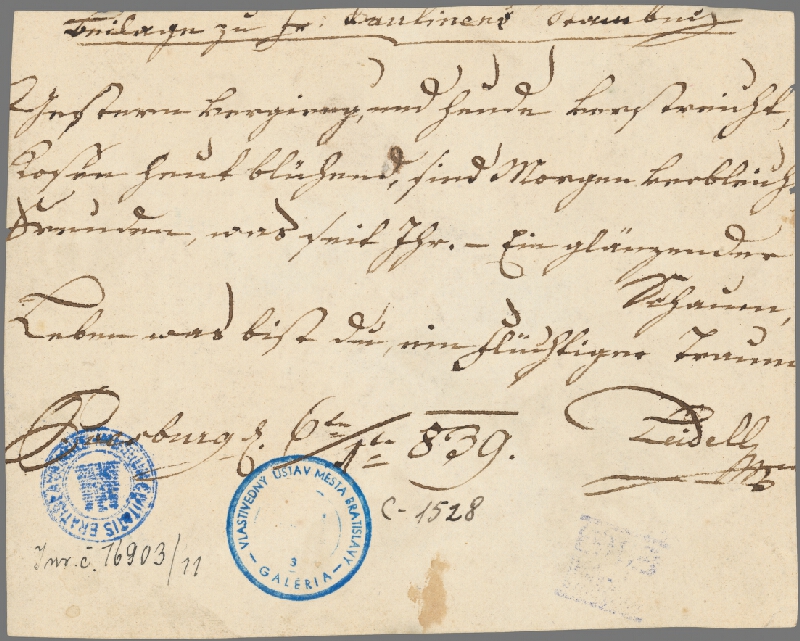 Beilage zu Fr: Paulinens Stambuch
Gestern vergieng, und heude verstreicht,
Rosen heut blühend, sind Morgen verbleicht
Freuden, was seit Ihr. – Ein glänzender
Schaum,
Leben was bist du, ein flüchtiger Traum
Pressburg d. 6ten/1ten 839.
Zeidell
VLASTIVEDNÝ ÚSTAV MESTA BRATISLAVY
3
GALÉRIA
C-1528
Inv. č. 16903/11